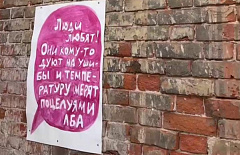 ЛЮДИ
ЛЮБЯТ!
ОНИ КОМУ-ТО
ДУЮТ НА УШИ-
БЫ И ТЕМПЕ-
РАТУРУ МЕРЯТ
ПОЦЕЛУЯМИ
ЛБА